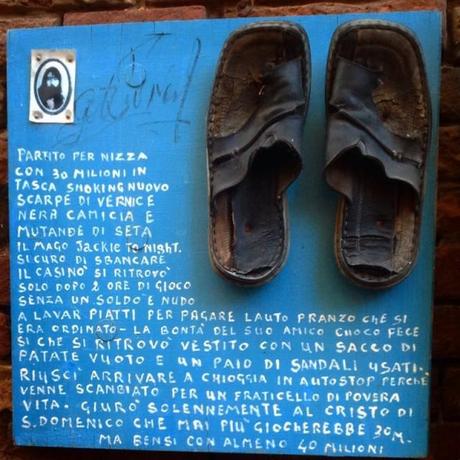 PARTITO PER NIZZA
CON 30 MILIONI IN
TASCA SMOKING NUOVO
SCARPE DI VERNICE
NERA CAMICIA E
MUTANDE DI SETA
IL MAGO JacKIe TO NIGHT.
SICURO DI SBANCARE
IL CASINO' SI RITROVO'
SOLO DOPO 2 ORE DI GIOCO
SENZA UN SOLDO E NUDO
A LAVAR PIATTI PER PAGARE LAUTO PRANZO CHE SI
ERA ORDINATO - LA BONTÀ DEL SUO AMICO CUOCO FECE
SI CHE SI RITROVO' VESTITO CON UN SACCO DI
PATATE VUOTO E UN PAIO DI SANDALI USATI.
RIUSCI ARRIVARE A CHIOGGIA IN AUTOSTOP PERCHÈ
VENNE SCAMBIATO PER UN FRATICELLO DI POVERA
VITA. GIURO' SOLENNEMENTE AL CRISTO DI
S. DOMENICO CHE MAI PIÙ GIOCHEREBBE 30 M.
MA BENSI CON ALMENO 40 MILIONI